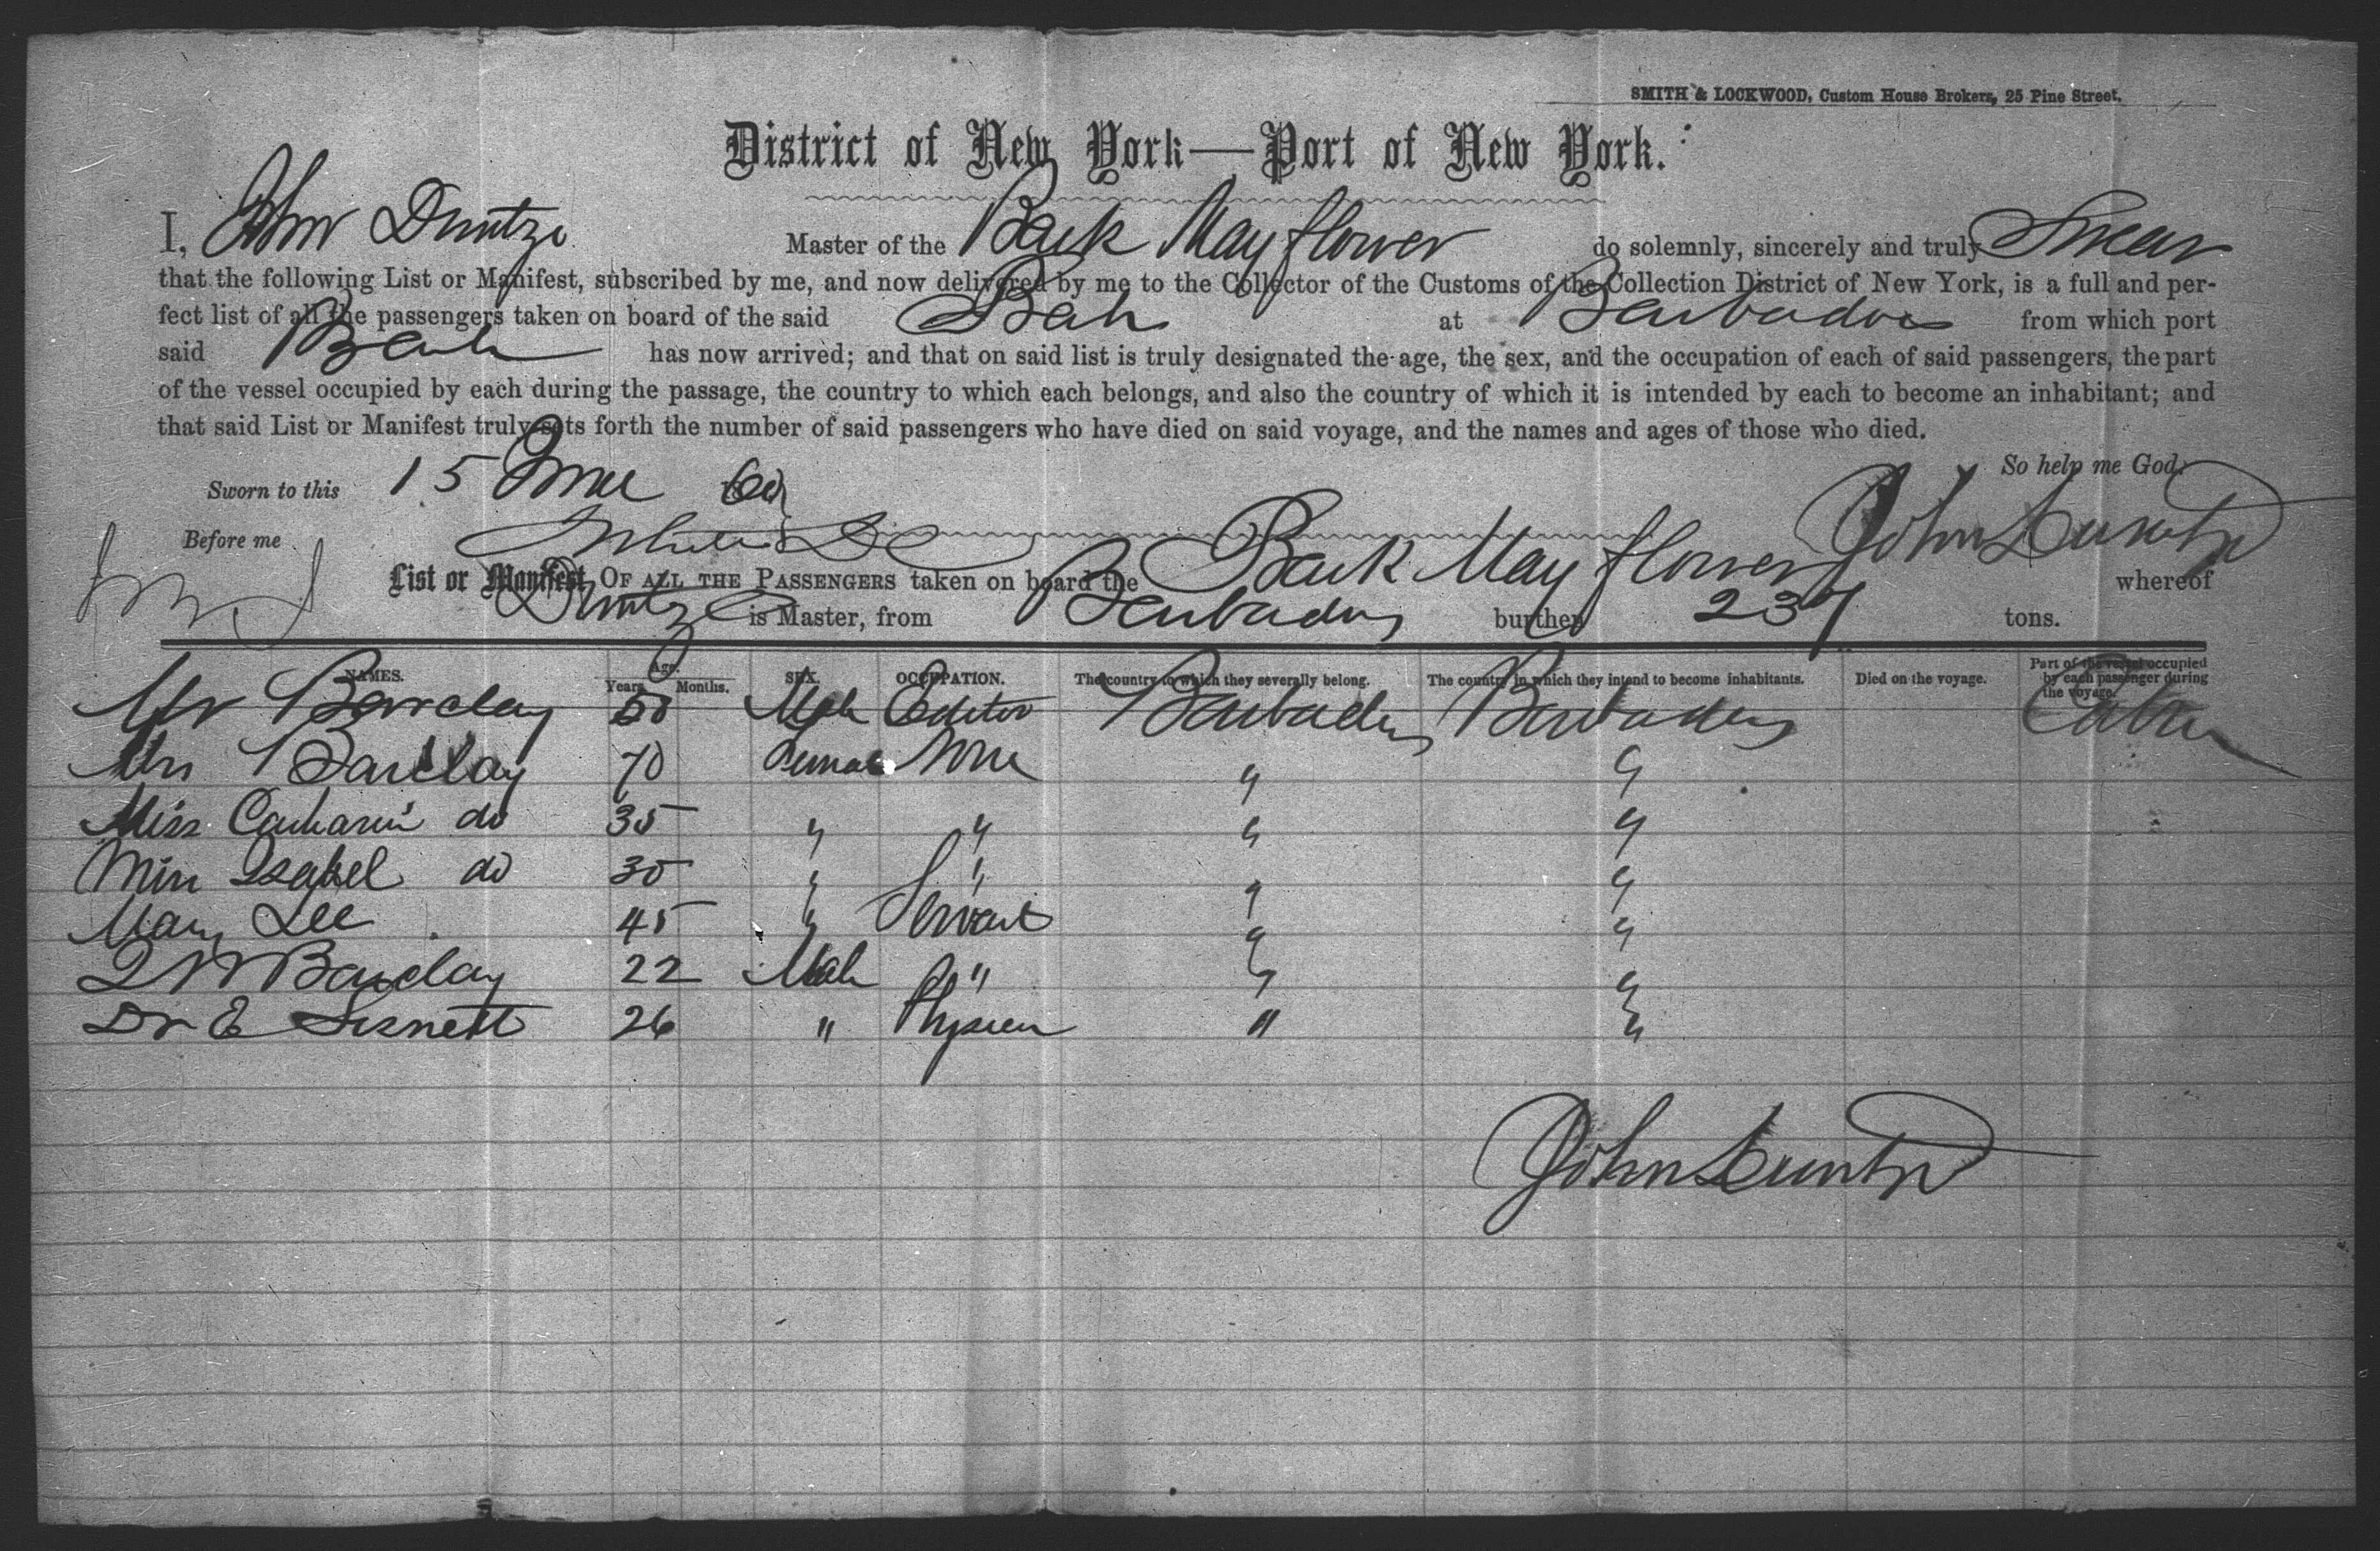 SMITH & LOCKWOOD, Custom House Brokers, 25 Pine Street.
District of New York—Port of New York.
I, John Duntze Master of the Bark Mayflower do solemnly, sincerely and truly Swear
that the following List or Manifest, subscribed by me, and now delivered by me to the Collector of the Customs of the Collection District of New York, is a full and per-
fect list of all the passengers taken on board of the said Bark at Barbadoes from which port
said Bark has now arrived; and that on said list is truly designated the age, the sex, and the occupation of each of said passengers, the part
of the vessel occupied by each during the passage, the country to which each belongs, and also the country of which it is intended by each to become an inhabitant; and
that said List or Manifest truly sets forth the number of said passengers who have died on said voyage, and the names and ages of those who died.
So help me God.
Sworn to this 15 June 60
Before me John Duntze
List or Manifest OF ALL THE PASSENGERS taken on board the Bark Mayflower whereof
Duntze is Master, from Barbadus burthen 237 tons.
NAMES. Age. Years. Months. SEX. OCCUPATION. The country to which they severally belong. The country in which they intend to become inhabitants. Died on the voyage. Part of the vessel occupied by each passenger during the voyage.
Mr Barclay 50 Male Editor Barbadus Barbadus Cabin
Mrs Barclay 70 Female None " "
Miss Catharin do 35 " " " "
Miss Isabel do 30 " " " "
Mary Lee 45 " Servant " "
Barclay 22 Male " " "
Dr E Sisnett 26 " Physicn " "
John Duntze